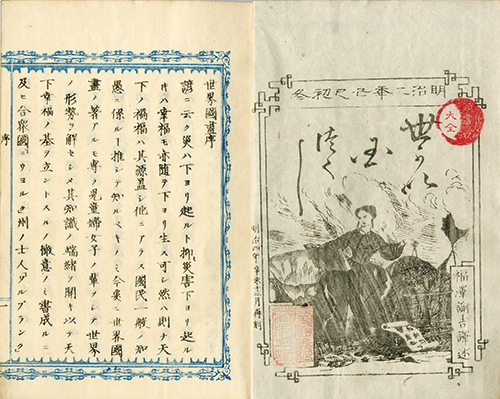 明治二季己巳初冬
世かい
国
つくし
福澤諭吉譯述
明治四年辛未十二月再刻
大全
世界國盡序
諺ニ云ク災ハ下ヨリ起ルト抑災害下ヨリ起ル
片ハ幸福モ亦随テ下ヨリ生ス可シ然ハ則チ天
下ノ禍福ハ其源蓋シ他ニアラス國民一般ノ知
愚ニ係ルヿ推シテ知ルベキノミ今爰ニ世界國
盡ヲ著スモ専ラ児童婦女子ノ輩ヲシテ世界
ノ形勢ヲ解セシメ其知識ノ端緒ヲ開キ以テ天
下幸福ノ基ヲ立ントスルノ微意ノミ書成ルニ
及ヒ合衆國ニウヨルク州ノ士人アルブランク
序
一